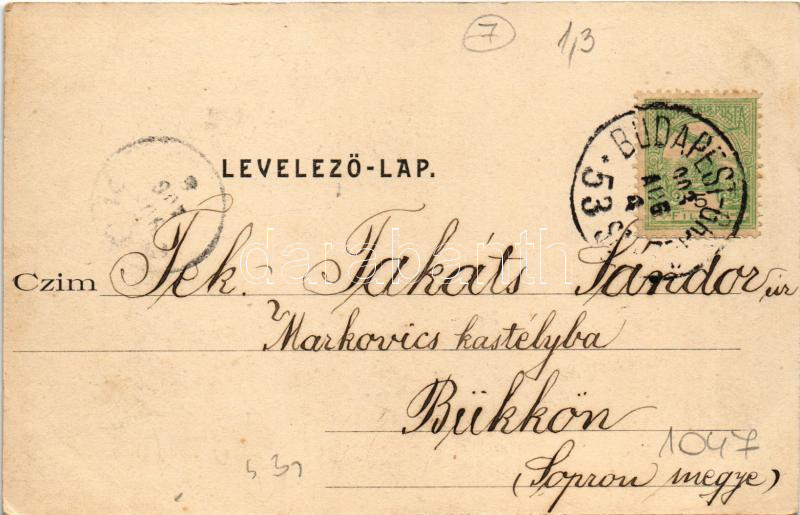 7 1,3
BUDAPEST
903 AUG 4
53
LEVELEZŐ-LAP.
darabanth
Czim Tek. Takáts Sándor úr
Markovics kastélyba
Bükkön
1047
(Sopron megye)